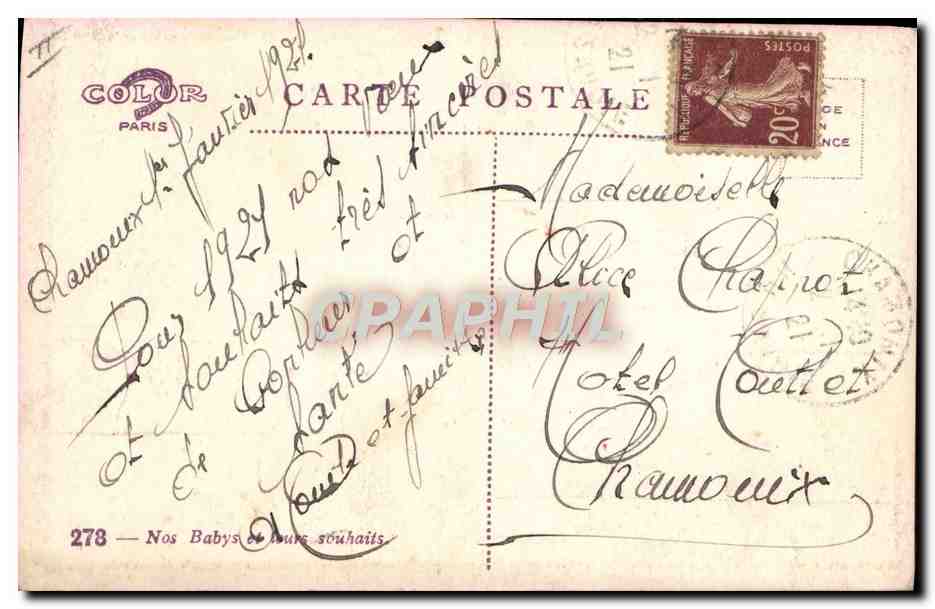 COLOR
PARIS
CARTE POSTALE
REPUBLIQUE FRANÇAISE
POSTES
20c
Chamonix 1er Janvier 1921.
Pour 1921 nos voeux
et souhaits très sincères
de bonheur et
santé
et famille
Mademoiselle
Alice Chappot
Hotel Couttet
Chamonix
CHAMONIX
21
CRAPHIL
278 — Nos Babys et leurs souhaits